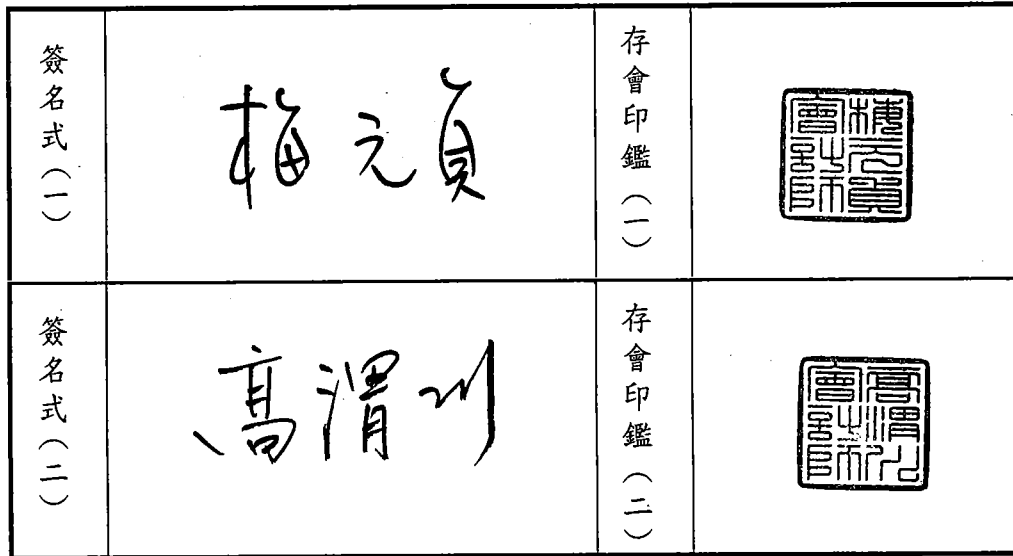 簽名式(一)
梅元貞
存會印鑑(一)
梅元貞會計師
簽名式(二)
高渭川
存會印鑑(二)
高渭川會計師